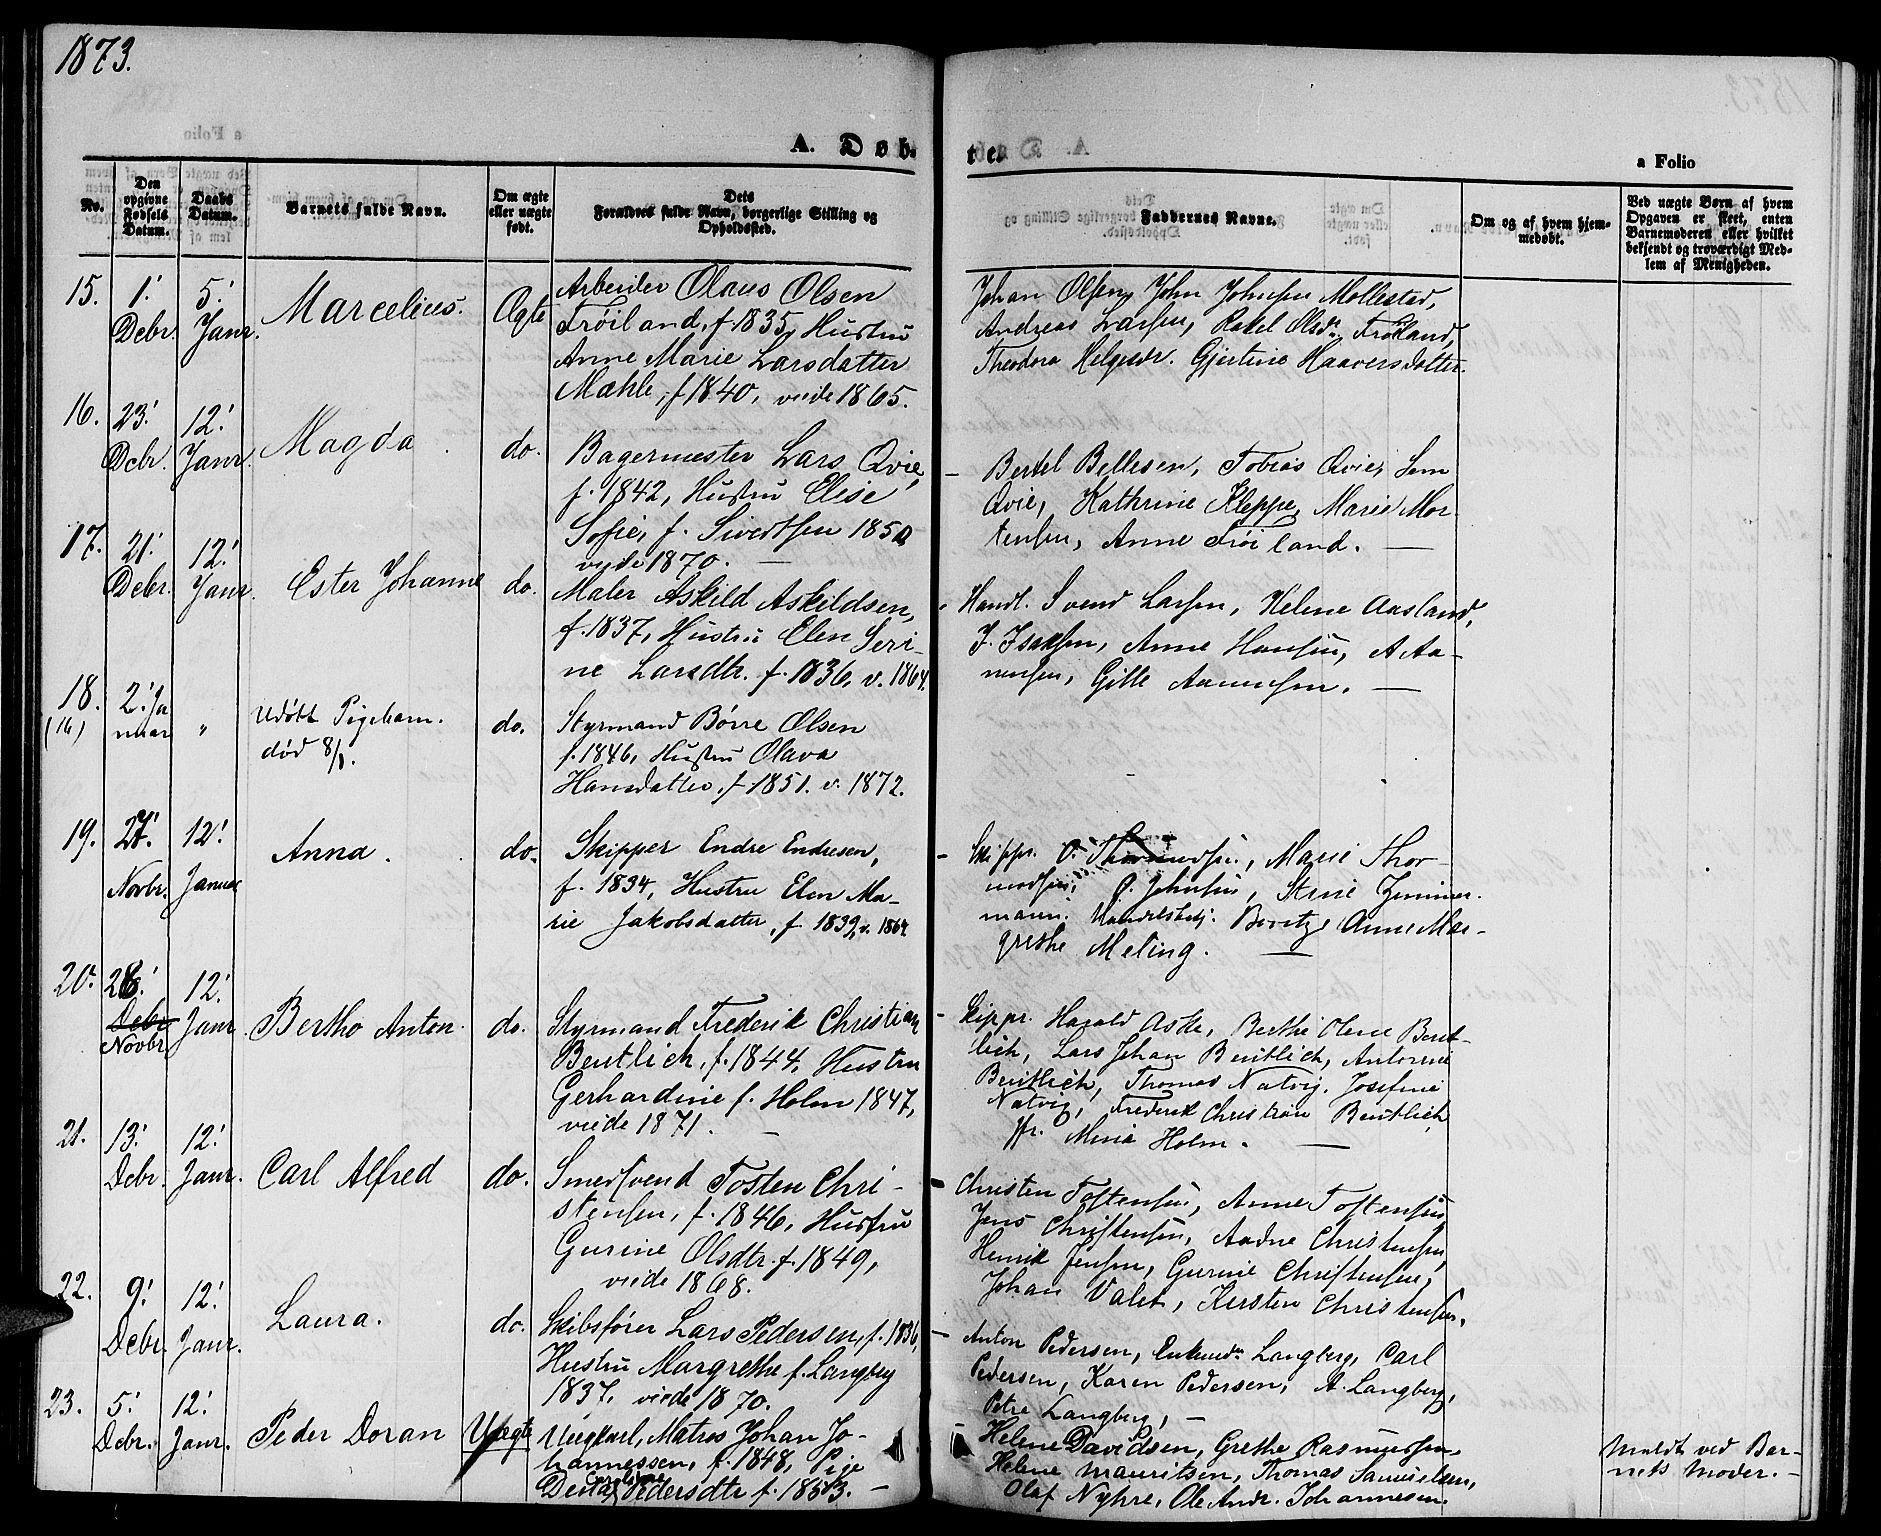 1873.
A. Døb-
te.
a Folio
No.
Den opgivne Fødsels Datum.
Daabs Datum.
Barnets fulde Navn.
Om ægte eller uægte født.
Dets Forældres fulde Navn, borgerlige Stilling og Opholdssted.
Faddernes Navne.
Om og af hvem hjemmedøbt.
Ved uægte Børn af hvem Opgaven er skeet, enten Barnemoderen eller hvilket bekjendt og troværdigt Medlem af Menigheden.
15.
1!
Debr.
5!
Janr.
Marcelius.
Ægte
Arbeider Olaus Olsen
Frøiland, f. 1835, Hustru
Anne Marie Larsdatter
Mæhle, f 1840, viede 1865.
Johan Olsen, John Johnsen Mollestad,
Andreas Larsen, Rakel Olsdr. Frøiland,
Theodora Helgesdr. Gjertine Haaversdatter.
16.
23!
Debr.
12!
Janr.
Magda
do.
Bagermester Lars Qvie,
f. 1842, Hustru Elise
Sofie, f. Sivertsen 1850
viede 1870. —
Bertel Bellesen, Tobias Qvie, Sem
Qvie, Kathrine Kleppe, Marie Mor-
tensen, Anne Frøiland. —
17.
21!
Debr.
12!
Janr.
Ester Johanne
do.
Maler Askild Askildsen,
f. 1837, Hustru Elen Seri-
ne Larsdtr. f. 1836, v. 1864.
Handl. Svend Larsen, Helene Aasland,
J. Isaksen, Anne Hansen, A Aa-
nensen, Gitle Aanensen. —
18.
(16)
2! Ja
nuar
"
Udøbt Pigebarn.
død 8/1.
do.
Styrmand Børre Olsen
f. 1846, Hustru Olava
Hansdatter, f 1851. v. 1872.
19.
27!
Novbr.
12!
Januar
Anna.
do.
Skipper Endre Endresen,
f. 1834, Hustru Elen Ma-
rie Jakobsdatter, f 1839, v. 1864
Skippr. O. Thormodsen, Marie Thor-
modsen, O. Johnsen, Stine Zimmer-
mann. Handelsbetj. Boritz, Anne Mar-
grethe Meling. —
20.
28!
Debr
Novbr
12!
Janr.
Bertho Anton.
do.
Styrmand Frederik Christian
Beutlich, f. 1844, Hustru
Gerhardine f. Holm 1847,
viede 1871. —
Skippr. Harald Aske, Berthe Olene Beut-
lich, Lars Johan Beutlich, Antonie
Beutlich, Thomas Natvig, Josefine
Natvig, Frederik Christian Beutlich
Jfr. Mina Holm. —
21.
13!
Debr.
12!
Janr.
Carl Alfred
do.
Smedsvend Tosten Chri-
stensen, f. 1846, Hustru
Gurine Olsdtr. f. 1849,
viede 1868.
Christen Tostensen, Anne Tostensen
Jens Christensen, Aadne Christensen,
Henrik Jensen, Gurine Christensen,
Johan Valet, Kirsten Christensen.
22.
9!
Debr.
12!
Janr.
Laura.
do.
Skibsfører Lars Pedersen, f. 1836,
Hustru Margrethe f. Langberg
1837, viede 1870.
Anton Pedersen, Langberg, Carl
Pedersen, Karen Pedersen, A. Langberg,
Petre Langberg, —
23.
5!
Debr.
12!
Janr.
Peder Doran
Uægte
Ungkarl, Matros Johan Jo-
hannessen, f. 1848, Pige
Caroline
Pedersdtr f. 1853. —
Helene Davidsen, Grethe Rasmussen,
Helene Mauritsen, Thomas Samuelsen,
Olaf Nyhre, Ole Andr. Johannesen.
Meldt ved Bar-
nets Moder. —